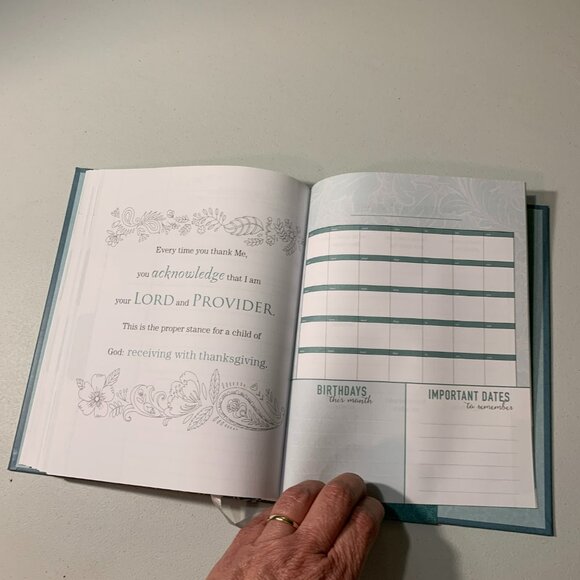 Every time you thank Me,
you acknowledge that I am
your LORD and PROVIDER.
This is the proper stance for a child of
God: receiving with thanksgiving.
BIRTHDAYS
this month
IMPORTANT DATES
to remember